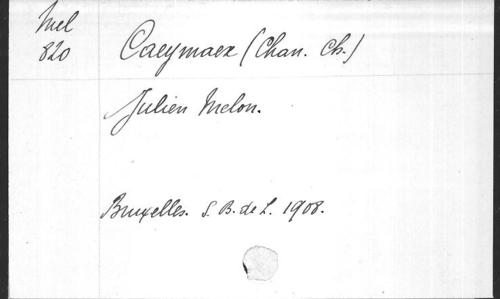 Mel
820
Caeymaex (Chan. Ch.)
Julien Melon.
Bruxelles. S. B. de L. 1908.